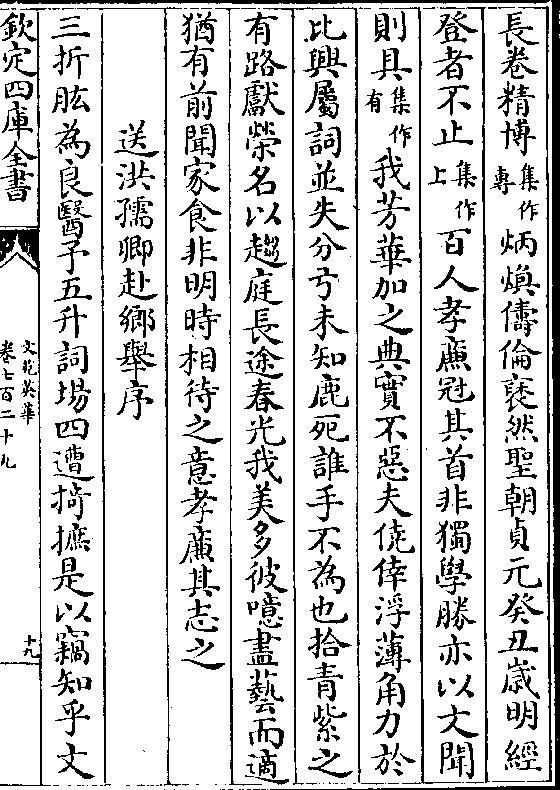 長卷精博集作專炳煥儔倫褎然聖朝貞元癸丑歲明經
登者不止集作上百人孝廉冠其首非獨學勝亦以文聞
則具集作有我芳華加之典實不惡夫僥倖浮薄角力於
比興屬詞並失分寸未知鹿死誰手不為也拾青紫之
有路獻榮名以趨庭長途春光我美多彼噫盡藝而適
猶有前聞家食非明時相待之意孝廉其志之
送洪孺卿赴鄉舉序
三折肱為良醫予五升詞場四遭掎摭是以竊知乎文
欽定四庫全書
文苑英華
卷七百二十九
十九